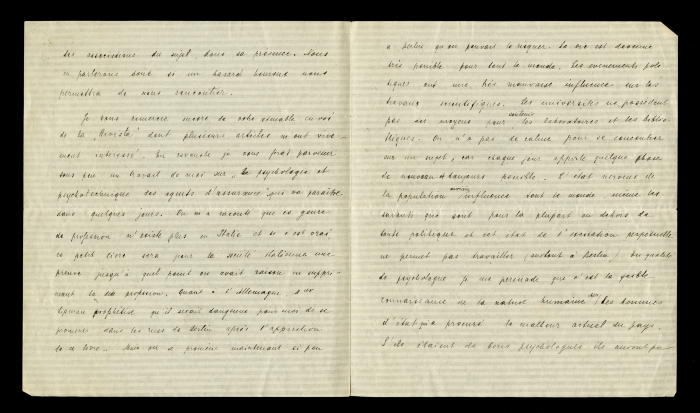 des associations du sujet dans sa présence. Nous
en parlerons donc si un hasard heureux nous
permettra de nous rencontrer.
Je vous remercie encore de votre aimable envoi
de la "Rivista" dont plusieurs articles m'ont vive-
ment intéressé. En revanche je vous ferai parvenir
sous peu un travail de moi sur "La psychologie et
psychotechnique des agents d'assurance" qui va paraître
dans quelques jours. On m'a raconté que ce genre
de profession n'existe plus en Italie et si c'est vrai
ce petit livre sera pour la société italienne une
preuve jusqu'à quel point on avait raison en suppri-
mant la dite profession. Quant à l'Allemagne,
Lipmann qu'il serait dangereux pour moi de se
promener dans les rues de Berlin après l'apparition
de ce livre. Mais on a promené maintenant si peu
à Berlin qu'on pouvait le risquer. La vie est devenue
très pénible pour tout le monde. Les événements poli-
tiques ont une très mauvaise influence sur les
travaux scientifiques. Les universités ne possèdent
pas des moyens pour soutenir les laboratoires et les biblio-
thèques. On n'a pas de calme pour se concentrer
sur un sujet, car chaque jour apporte quelque chose
de nouveau et toujours pénible. L'état nerveux de
la population influence tout le monde, même les
savants qui sont pour la plupart en dehors de
toute politique et cet état de l'excitation perpétuelle
ne permet pas travailler (surtout à Berlin). En qualité
de psychologue je me persuade que c'est la faible
connaissance de la nature humaine des hommes
d'état qui a procuré le malheur actuel du pays.
S'ils étaient de bons psychologues ils auront pu